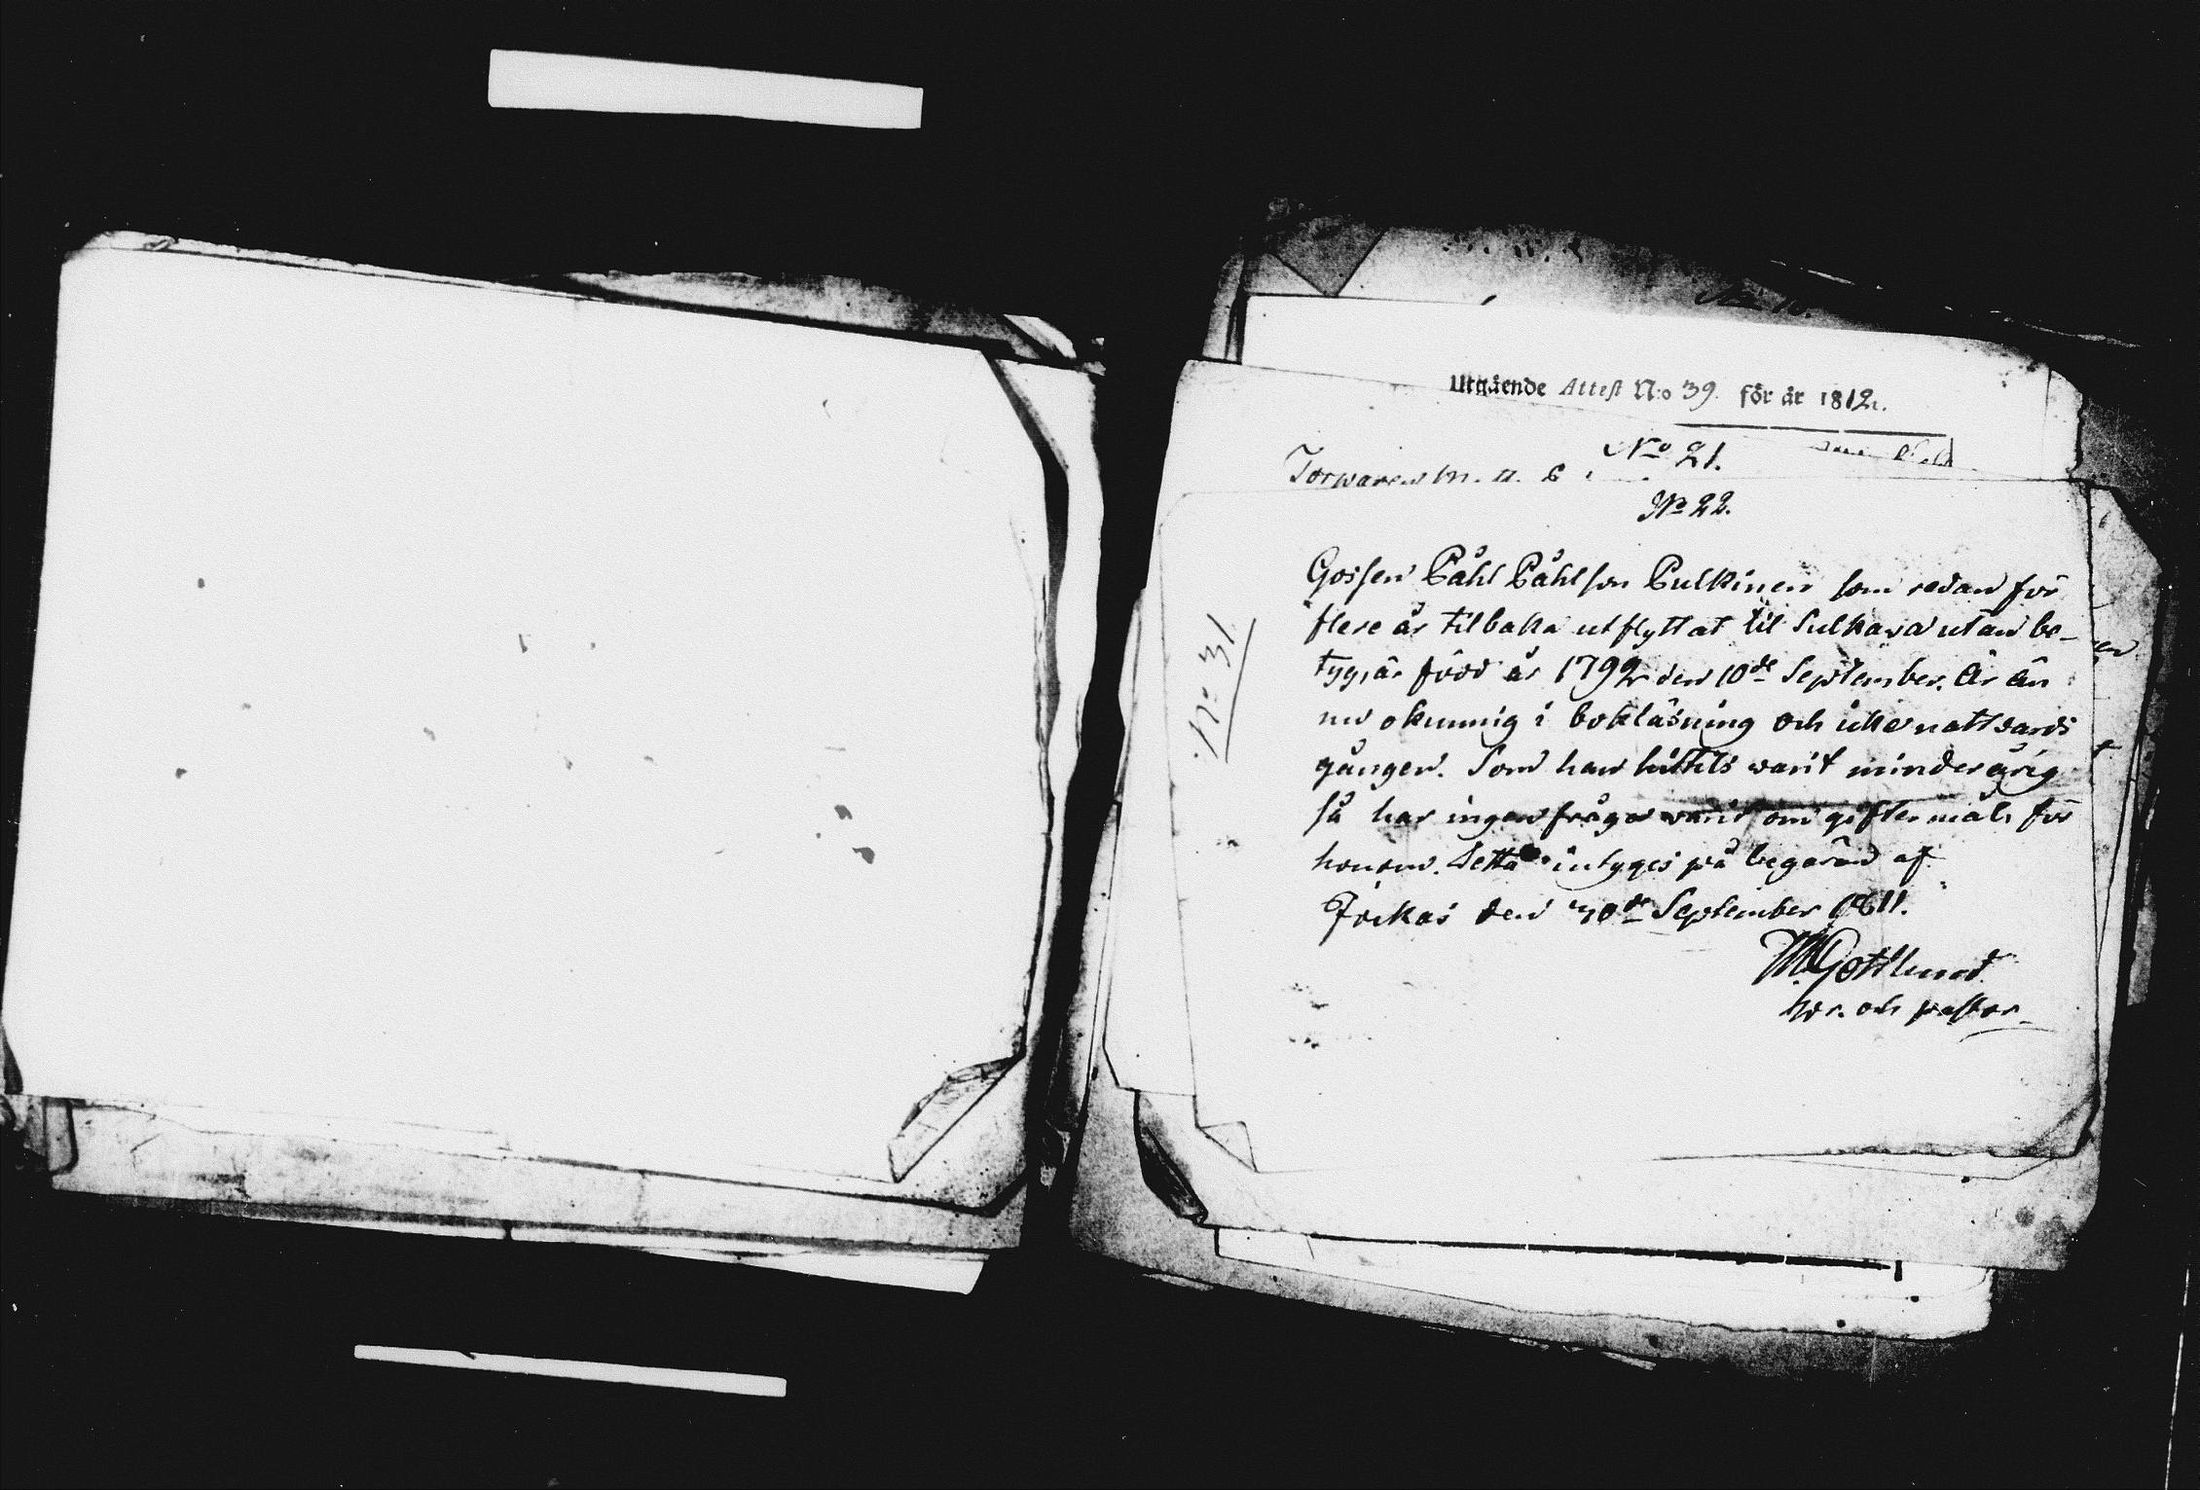 Utgående Attest N:o 39. för år 1812.
No 21.
No 22.
No 31
Gossen Påhl Påhlson Pulkinen som redan för
flere år tilbaka utflyttat til Sulkava utan be-
tyg, är född år 1792 den 10de September. Är än
nu okunnig i bokläsning och icke nattvards
gången. Som han hittils varit minderårig
så har ingen fråga varit om giftermåls för
honom. Detta intygas på begäran af
Jockas den 30de September 1811.
M. Gottlund
 och pastor